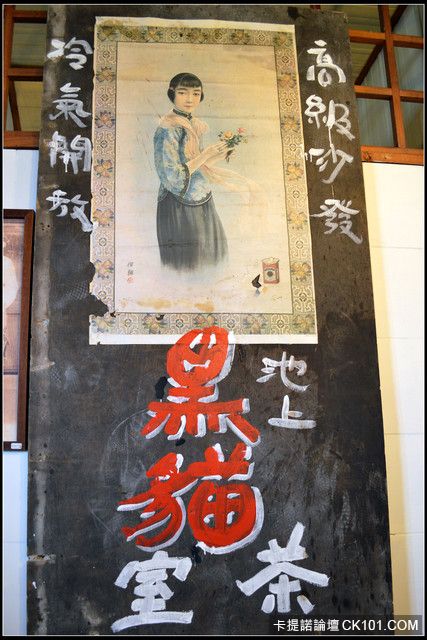 高級沙發
冷氣開放
池上
黑貓
茶室
卡提諾論壇 CK101.COM